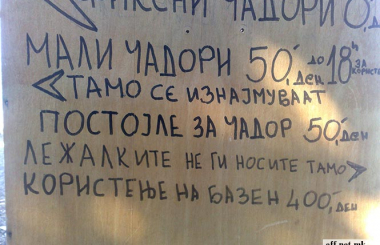 ФИКСНИ ЧАДОРИ
МАЛИ ЧАДОРИ 50,- ден до 18ч ЗА КОРИСТ
ТАМО СЕ ИЗНАЈМУВААТ
ПОСТОЈЛЕ ЗА ЧАДОР 50,- ден
ЛЕЖАЛКИТЕ НЕ ГИ НОСИТЕ ТАМО
КОРИСТЕЊЕ НА БАЗЕН 400,- ден
off.net.mk